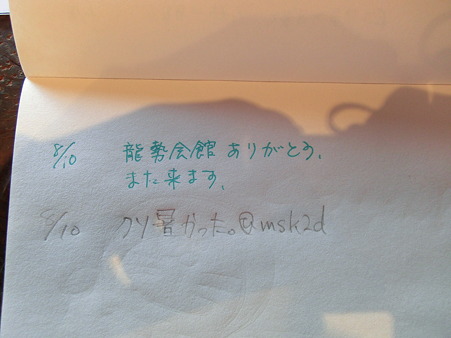 8/10 能勢会館 ありがとう、
また来ます。
8/10 クソ暑かった。@msk2d